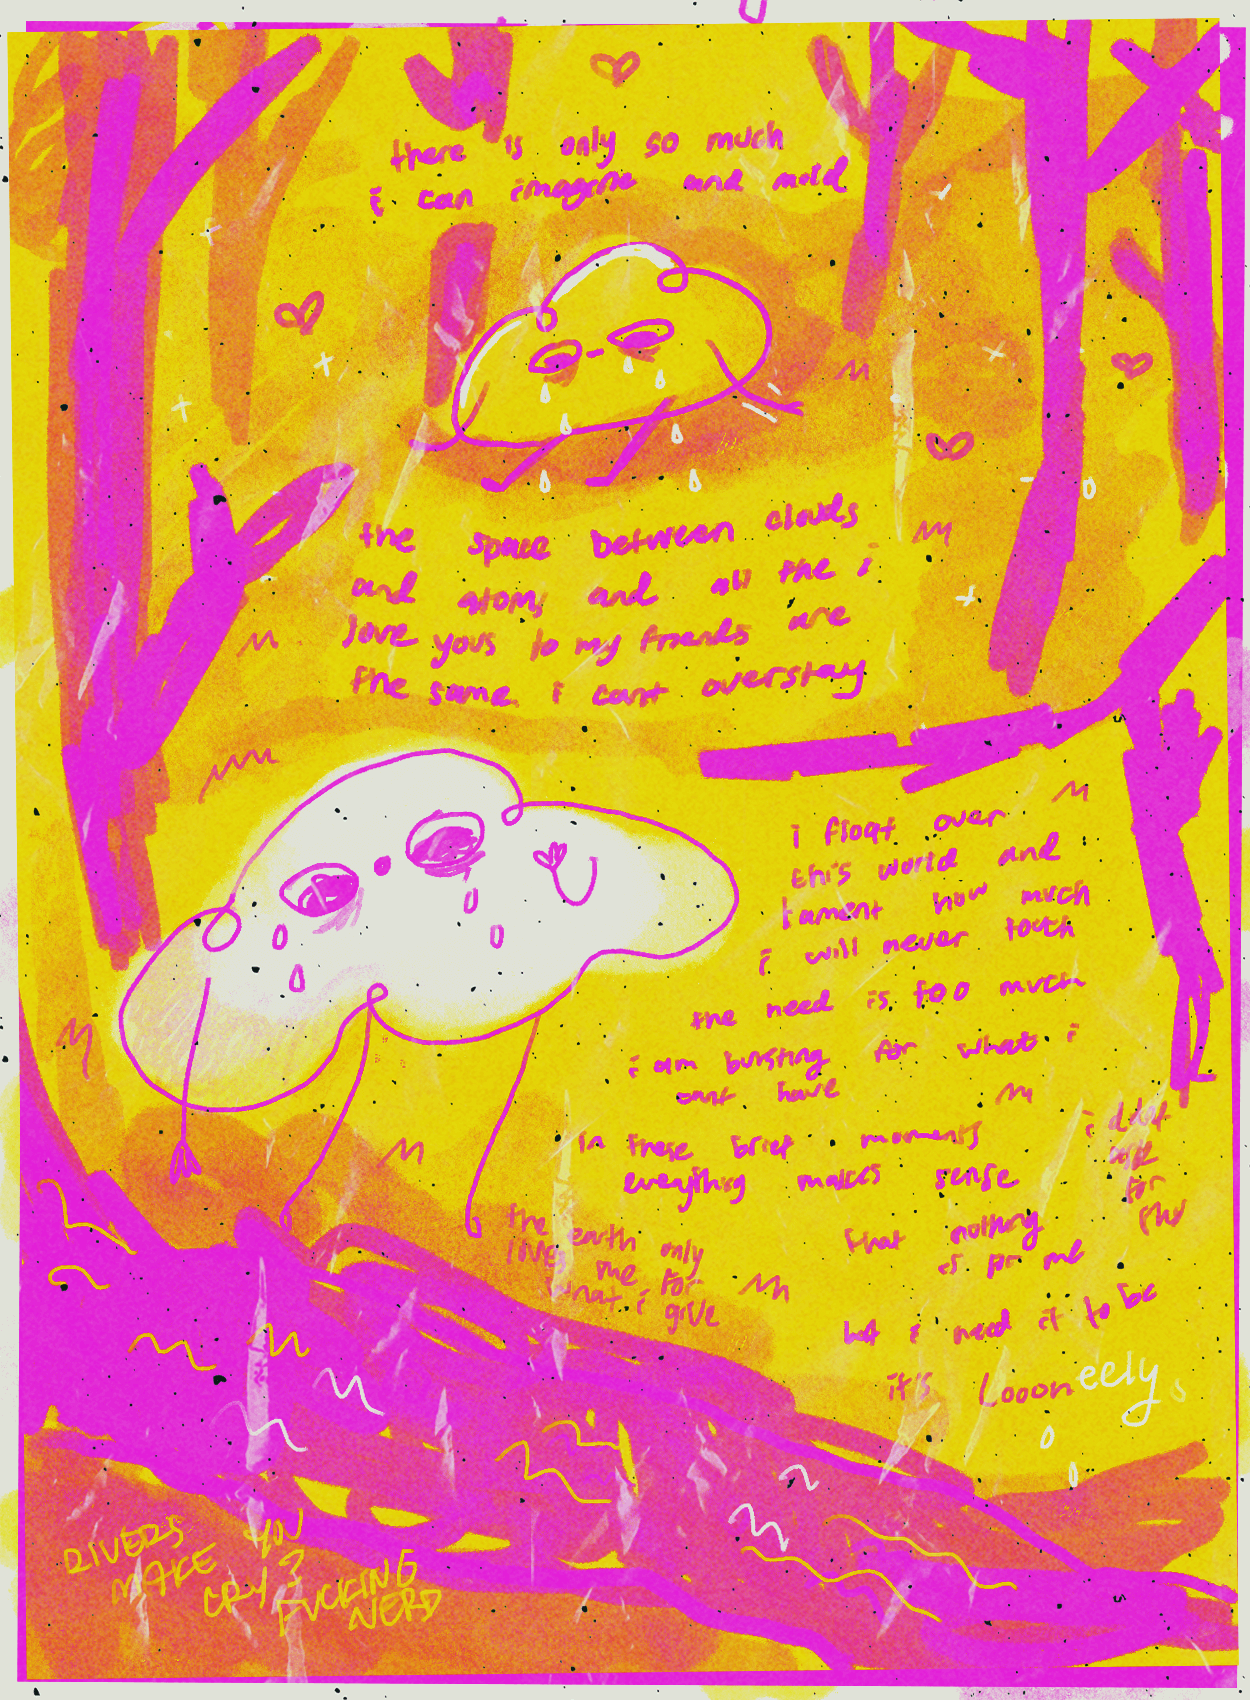 there is only so much
i can imagine and mold
the space between clouds
and atoms and all the i
love yous to my friends are
the same. i cant overstay
i float over
this world and
lament how much
i will never touch
the need is too much
i am bursting for what i
cant have
in these brief moments
everything makes sense
that nothing
is for me
but i need it to be
it's Loooneely
i didnt
ask
for
this
the earth only
me for
what i
give
RIVERS
MAKE YOU
CRY?
FUCKING
NERD